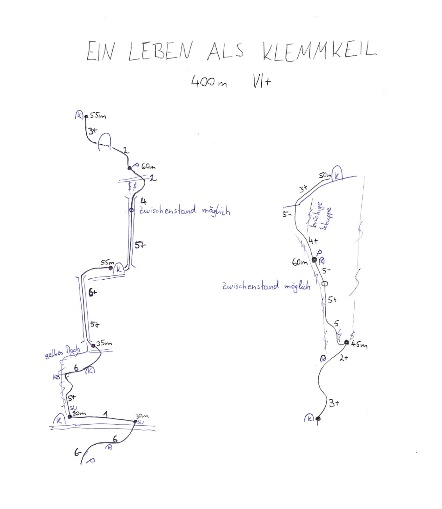 EIN LEBEN ALS KLEMMKEIL
400m VI+
K 55m
3+
2
60m
2
4
zwischenstand möglich
5+
55m K
6+
5+
35m
gelbes Dach
6
K
5+
SU
K 30m
1
30m
SU
6
6-
50m K
3+
5-
brüchige Schuppe
4+
60m
5-
zwischenstand möglich
5+
5
45m
2+
3+
K